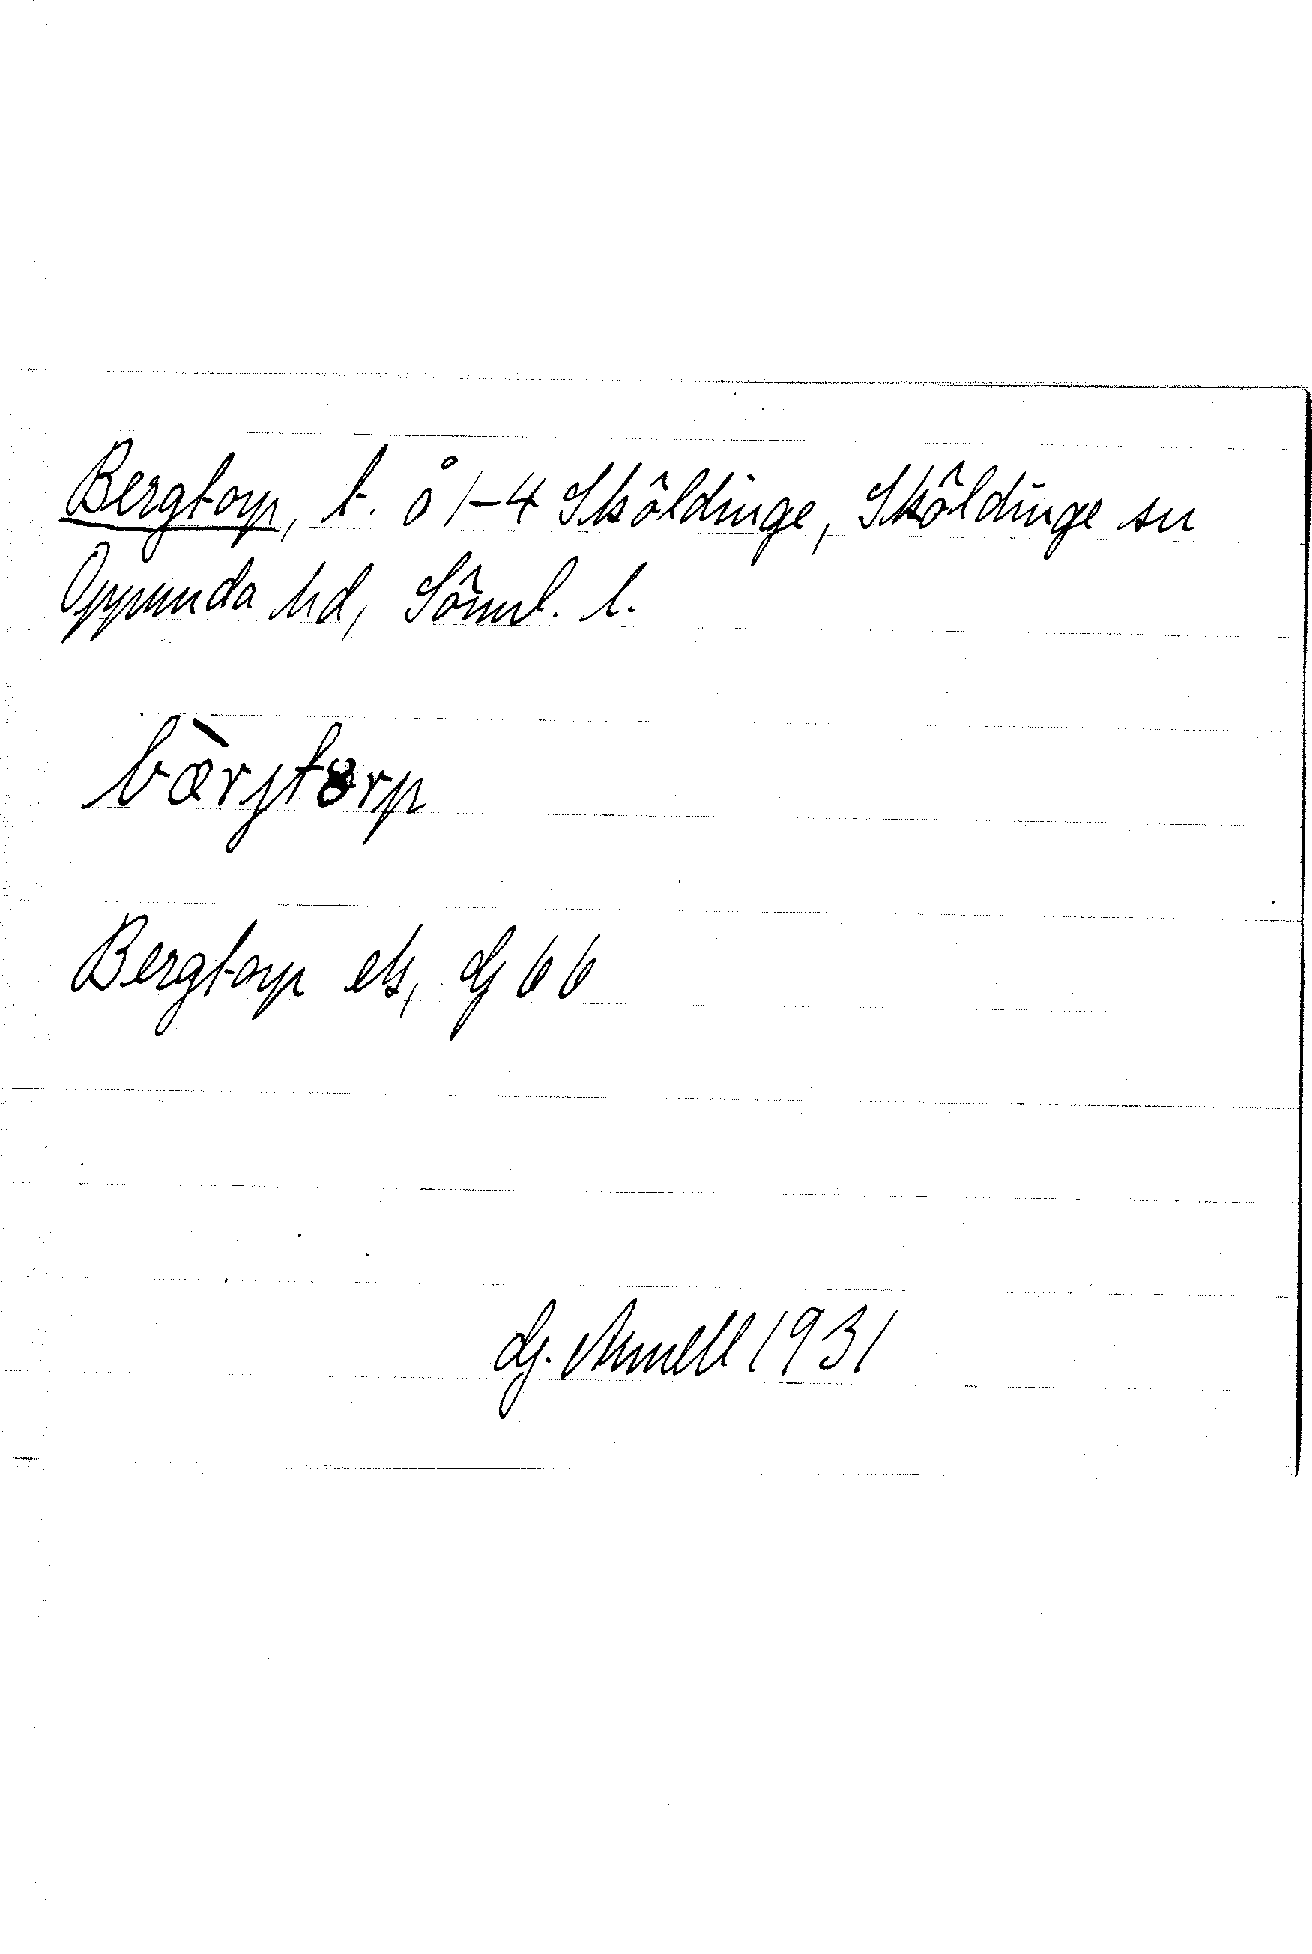 Bergtorp, t. å 1-4 Sköldinge, Sköldinge sn
Oppunda hd, Söml. l.
bæ̀rjtorp
Bergtorp ek, dj 66
dj. Arnell 1931